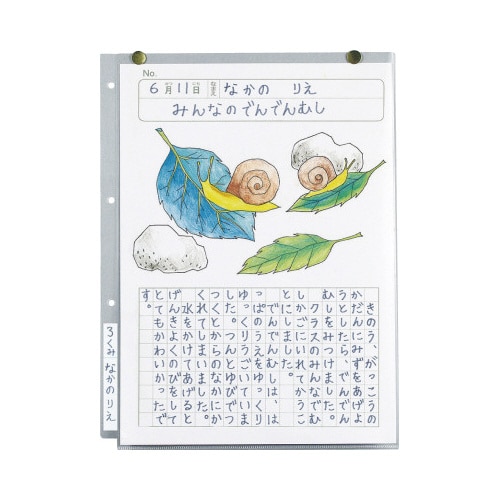 No.
6月11日 なまえ なかの りえ
みんなのでんでんむし
きのう、がっこうの
かだんにみずをあげよ
うとしたら、でんでん
むしをみつけました。
クラスのみんなでむ
しかごにいれてかうこ
とにしました。
でんでんむしは、は
っぱのうえをゆっくり
ゆっくりうごいていま
した。つんとゆびでつ
つくとからのなかにか
くれてしまいました。
水をかけてあげると
げんきよくのびをして
とてもかわいかったで
す。
3くみ なかのりえ